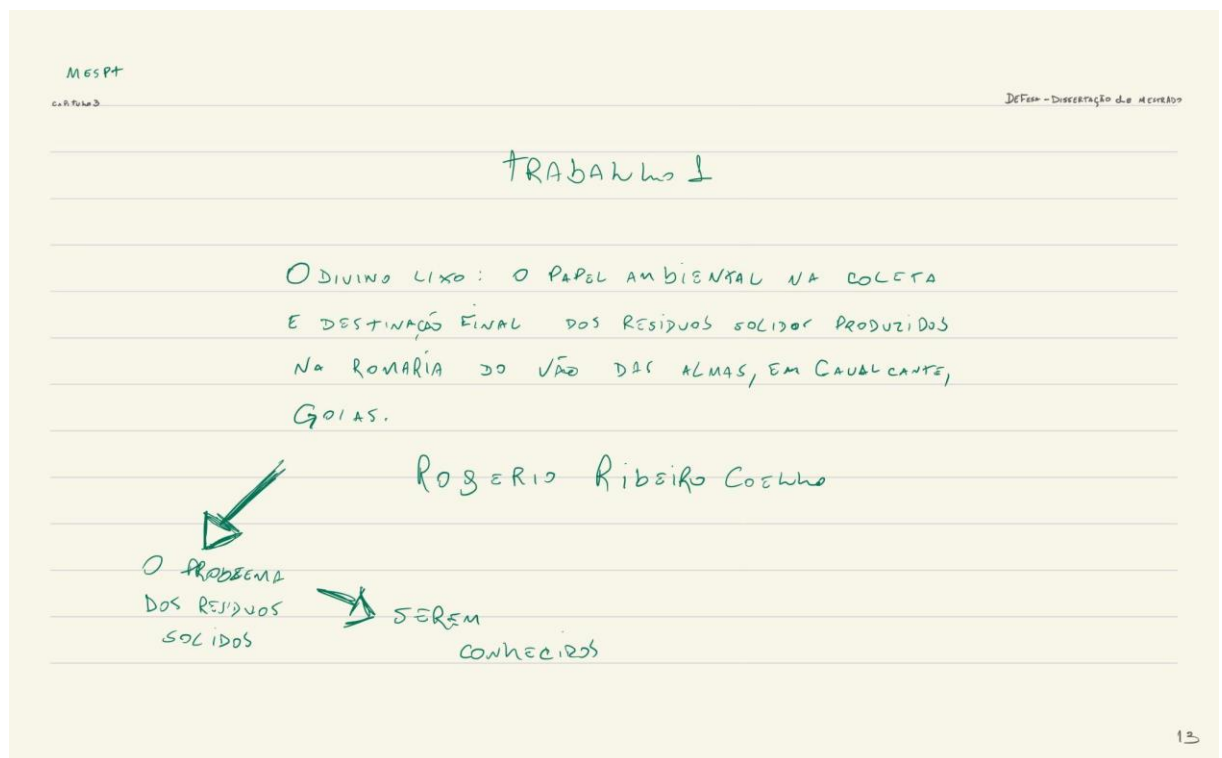 MESPT
CAPITULO 3
DEFESA - DISSERTAÇÃO de MESTRADO
TRABALHO 1
O DIVINO LIXO: O PAPEL AMBIENTAL NA COLETA
E DESTINAÇÃO FINAL DOS RESIDUOS SOLIDOS PRODUZIDOS
NA ROMARIA DO VÃO DAS ALMAS, EM CAVALCANTE,
GOIAS.
ROGERIO RIBEIRO COELHO
O PROBLEMA
DOS RESIDUOS
SOLIDOS
SEREM
CONHECIDOS
13